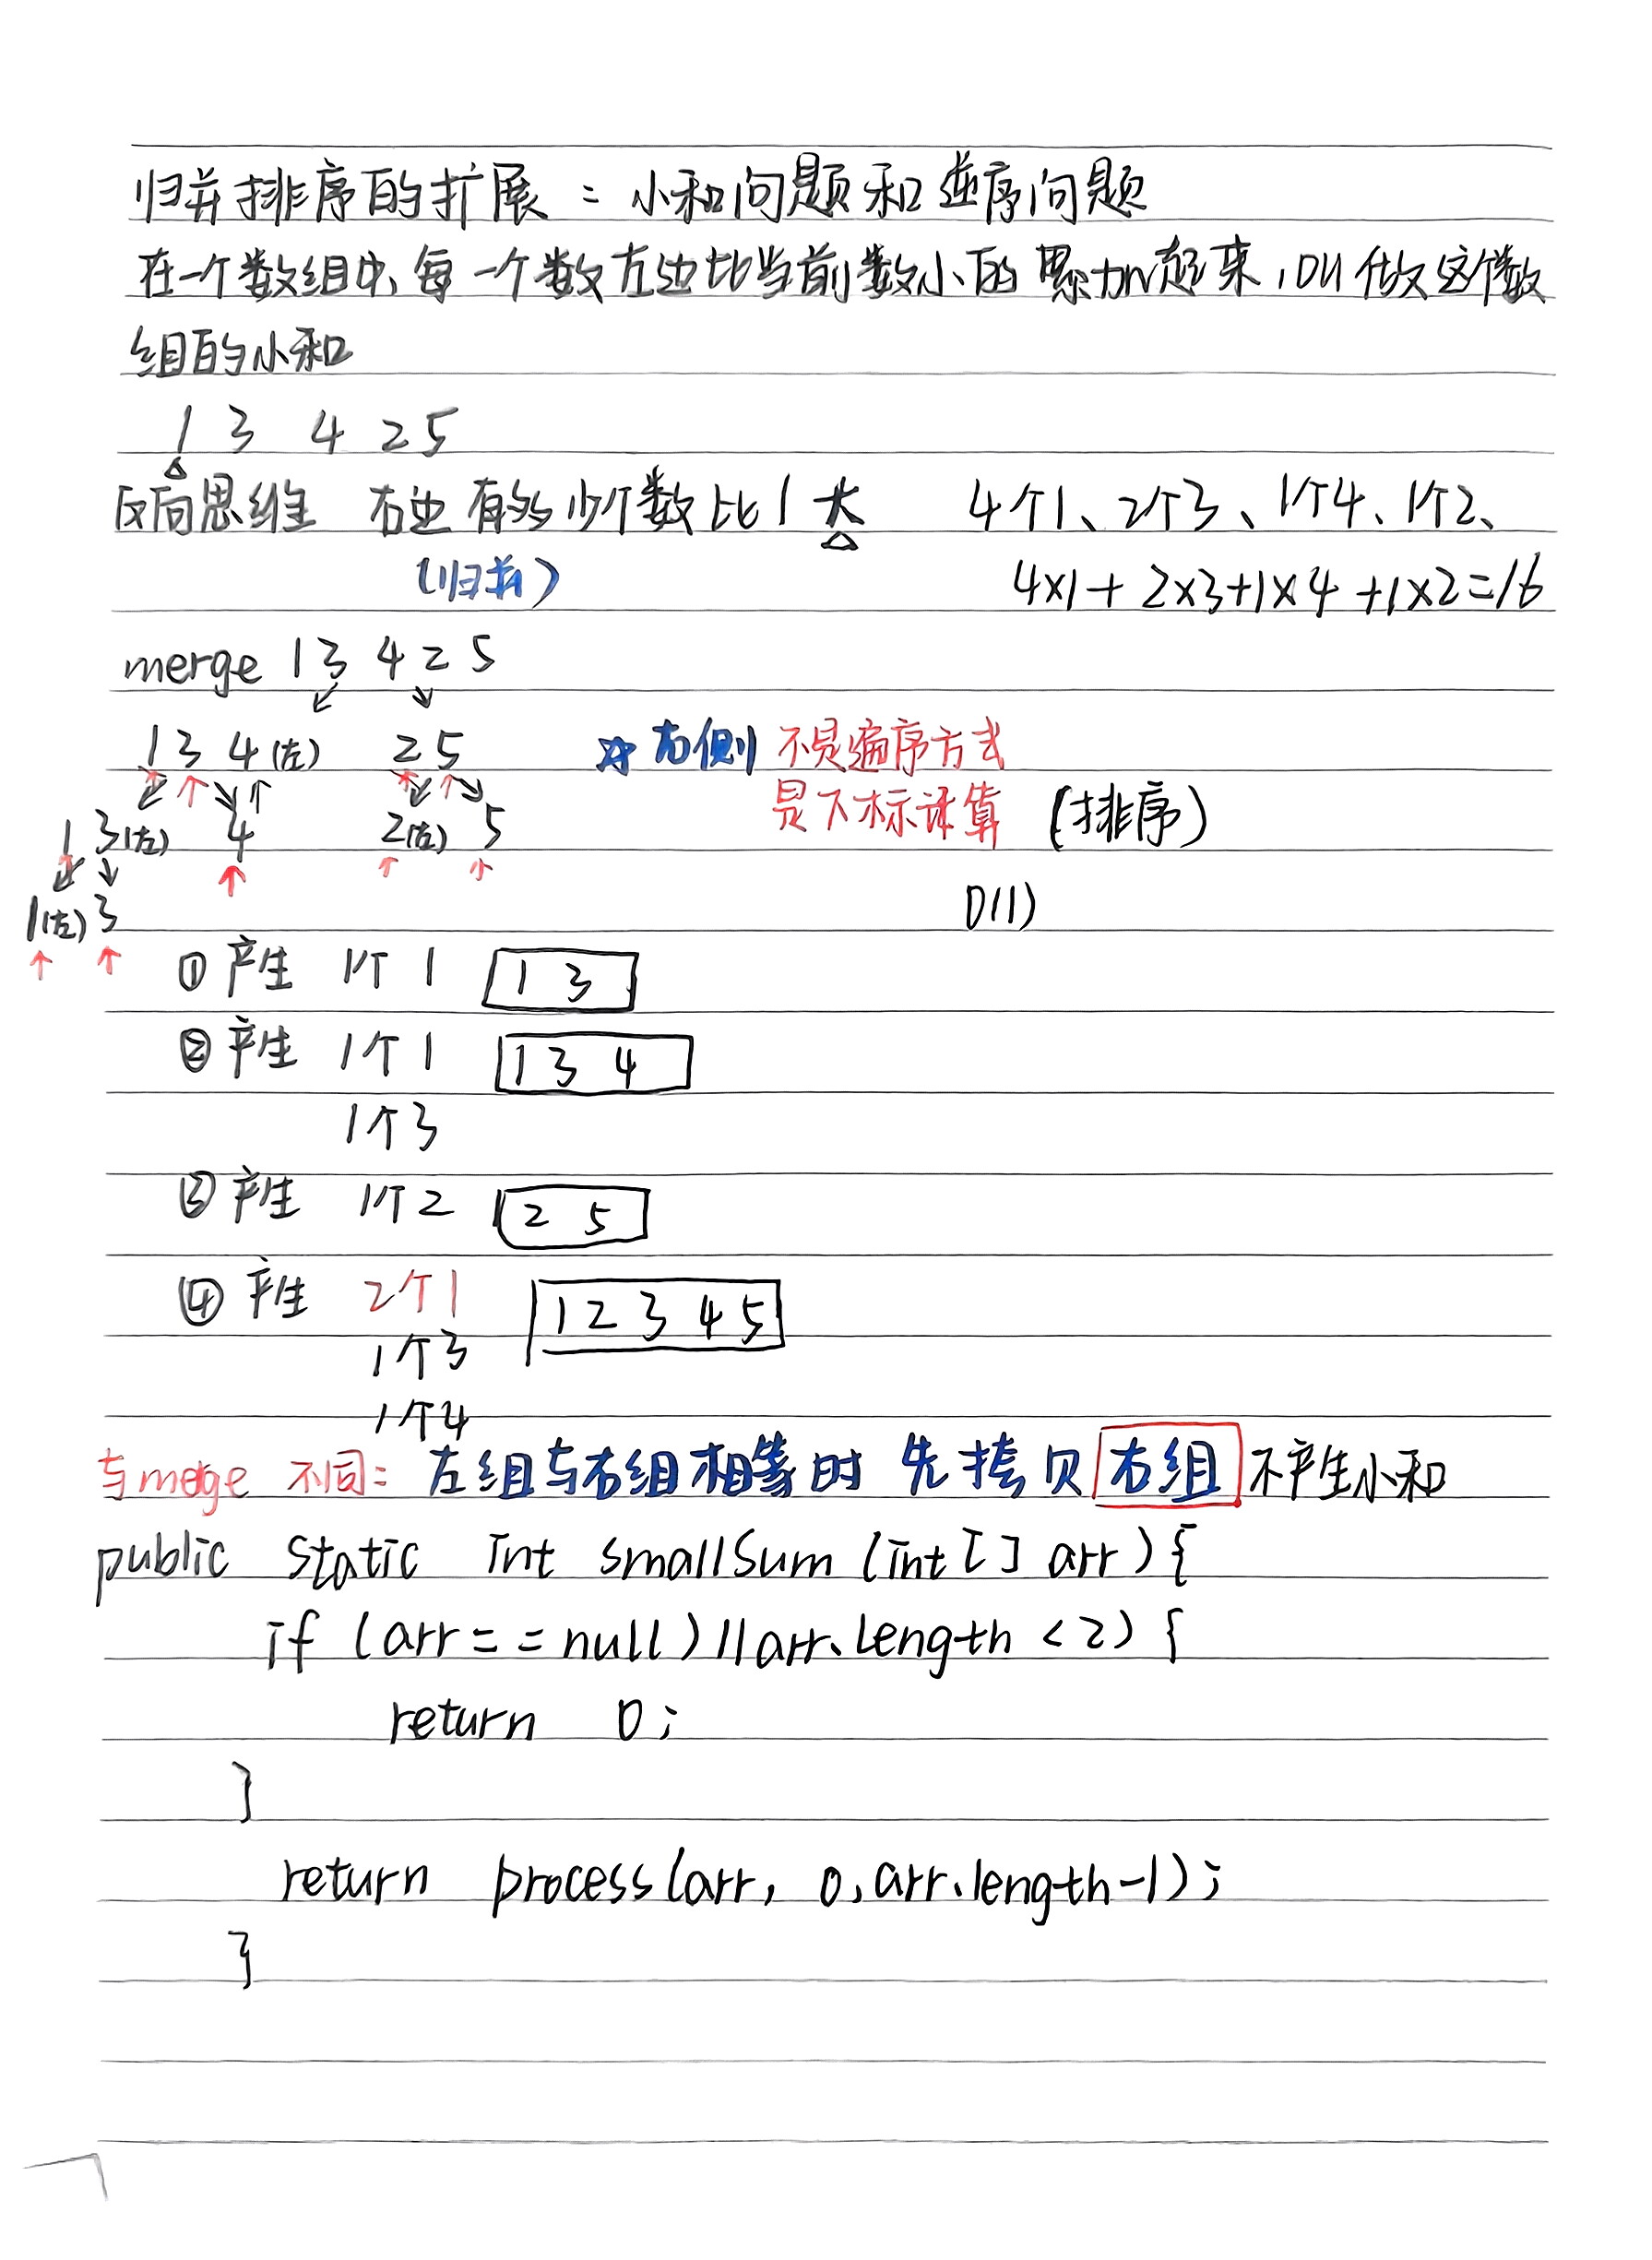 归并排序的扩展：小和问题和逆序问题
在一个数组中，每一个数左边比当前数小的累加起来，叫做这个数
组的小和
1 3 4 2 5
反向思维 右边有多少个数比1大 4个1、2个3、1个4、1个2、
(归并) 4×1+2×3+1×4+1×2=16
merge 1 3 4 2 5
1 3 4(左) 2 5 ☆右侧 不是遍序方式
1 3(左) 4 2(左) 5 是下标计算 (排序)
1(左) 3 O(1)
① 产生 1个1 1 3
② 产生 1个1 1 3 4
1个3
③ 产生 1个2 2 5
④ 产生 2个1 1 2 3 4 5
1个3
1个4
与merge 不同：左组与右组相等时 先拷贝 右组 不产生小和
public static int smallSum (int[] arr){
if (arr==null)||arr.length<2){
return 0;
}
return process(arr, 0, arr.length-1);
}